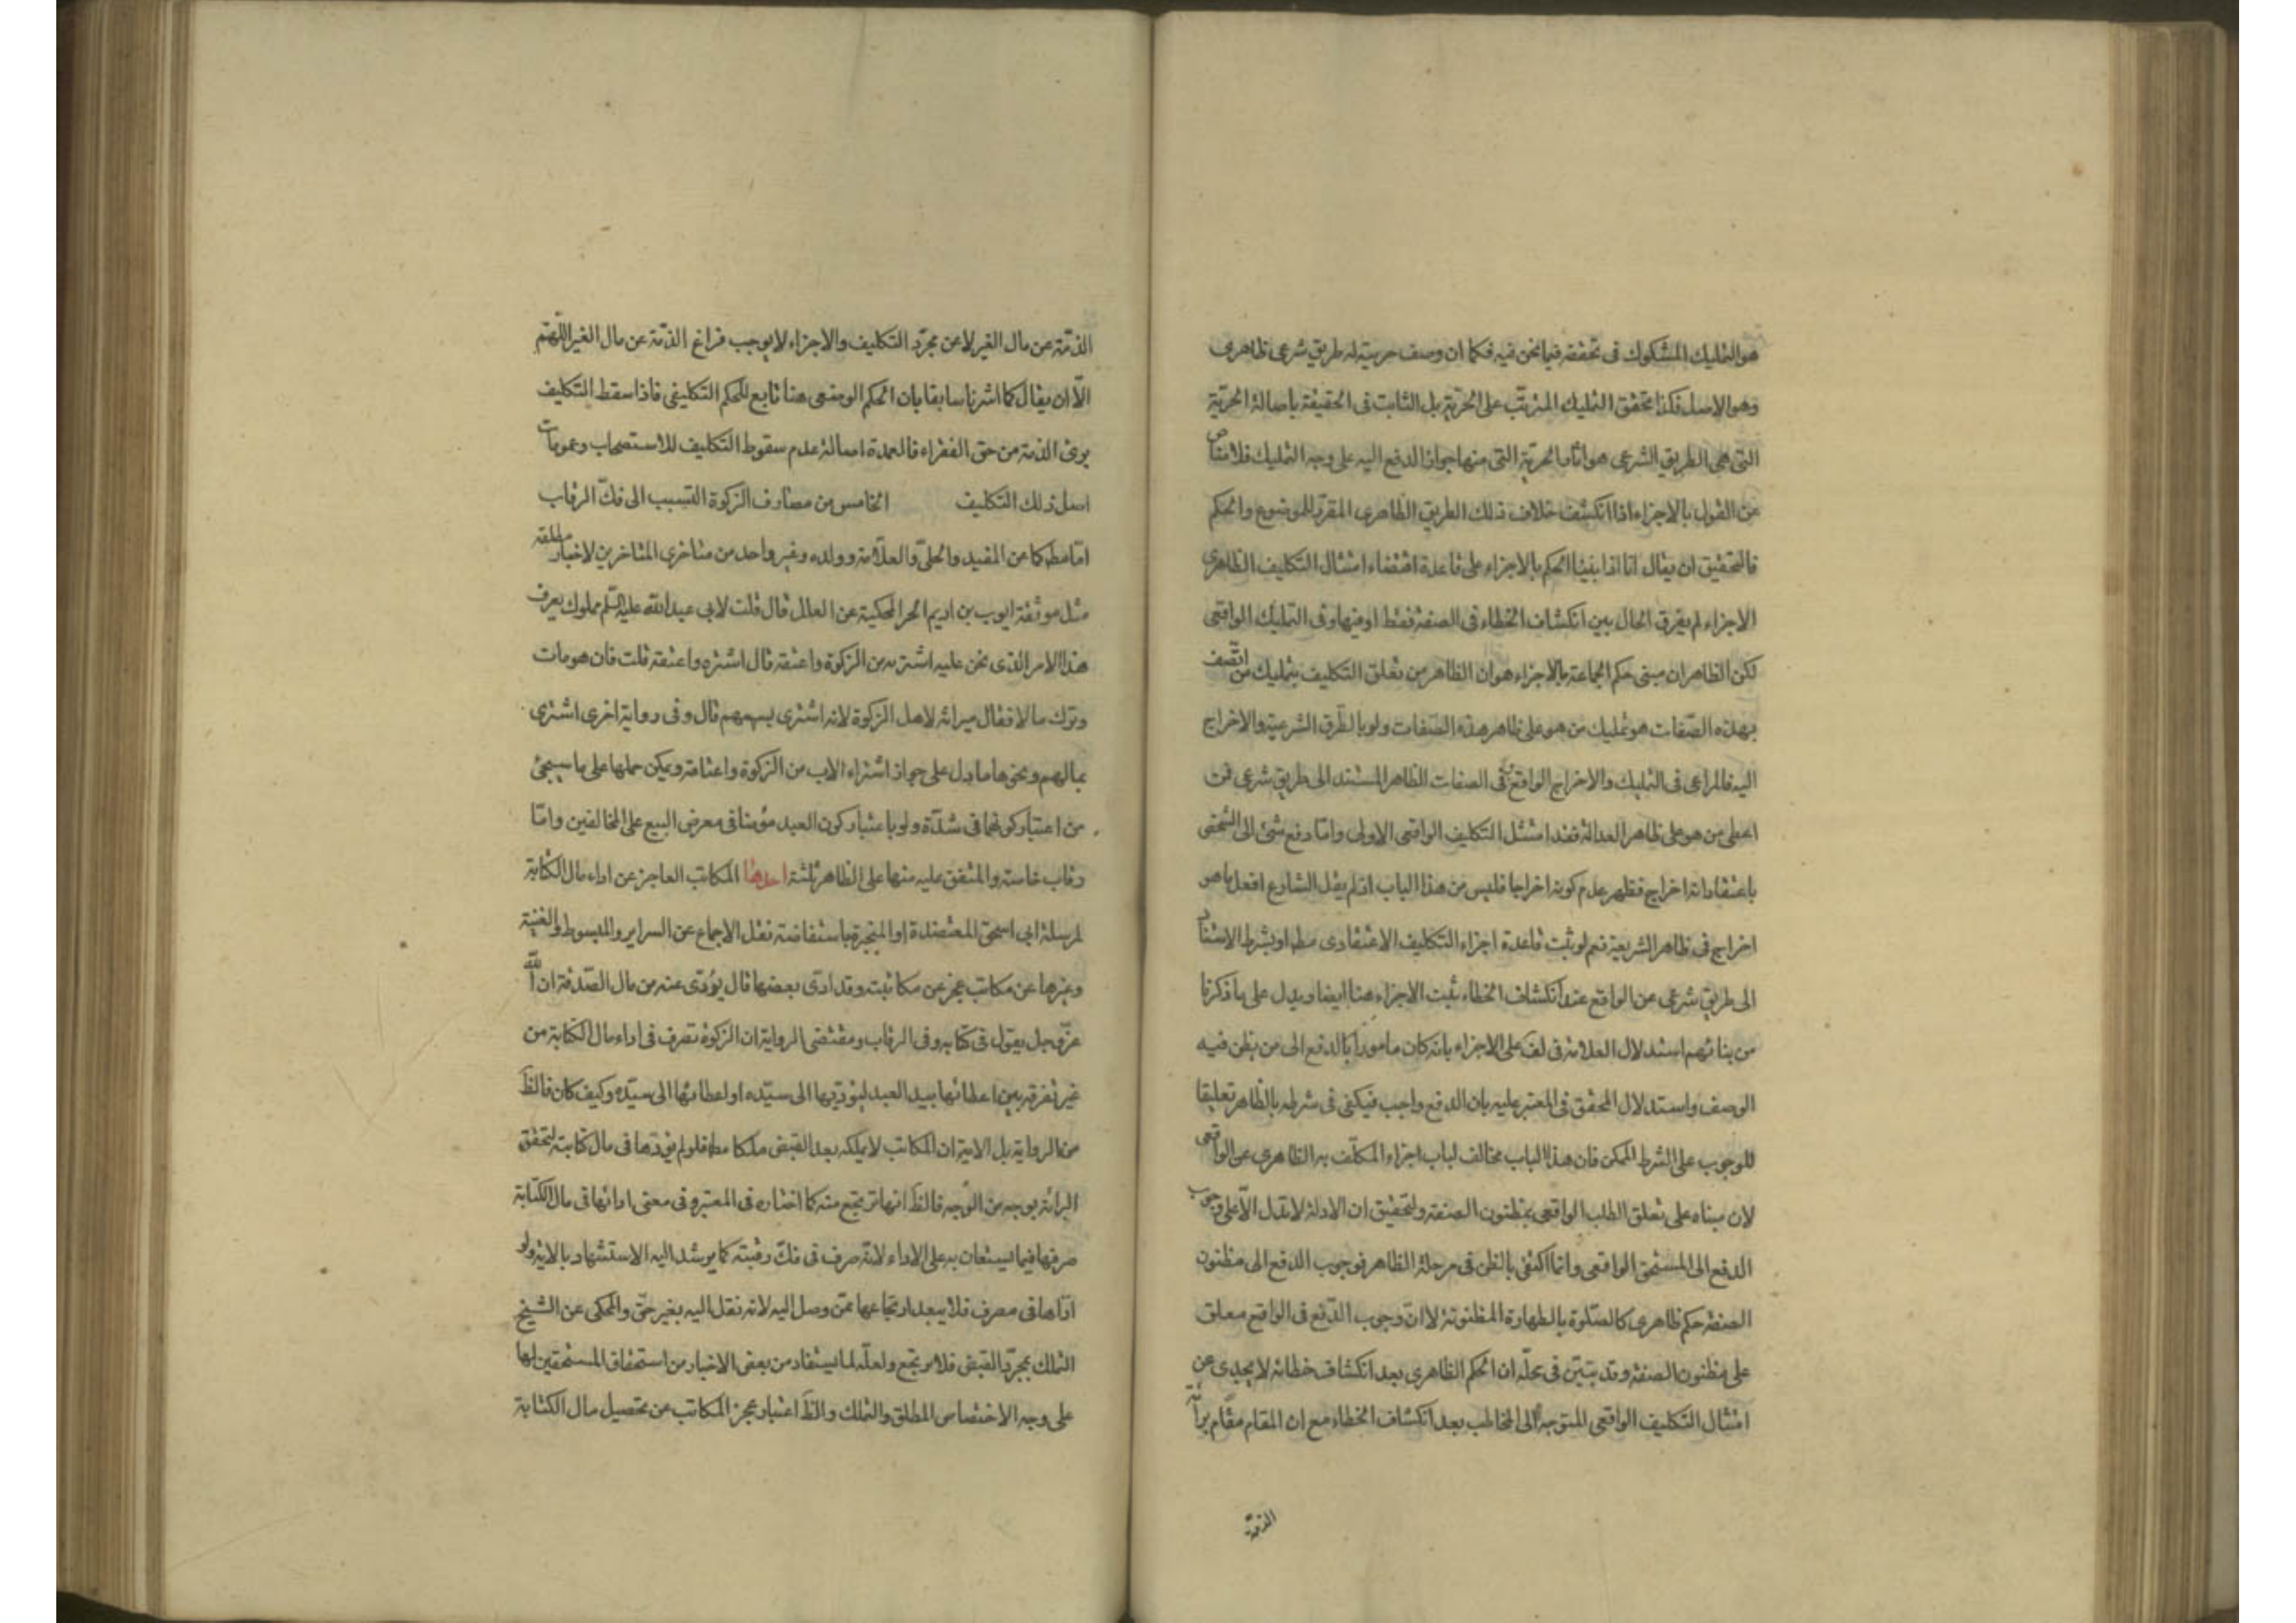 هو التمليك المشكوك فى تحققه فيما نحن فيه فكما ان وصف حريته له طريق شرعى ظاهرى
وهو الاصل فكذا تحقق التمليك المترتب على الحرّيّة بل الثابت فى الحقيقة باصالة الحرّيّة
التى هى الطريق الشرعى هو اثار الحرّيّة التى منها جواز الدفع اليه على وجه التمليك فلا مناص
من القول بالاجزاء اذا انكشف خلاف ذلك الطريق الظاهرى المقرر للموضوع والحكم
فالتحقيق ان يقال انا اذا بنينا الحكم بالاجزاء على قاعدة اقتضاء امتثال التكليف الظاهرى
الاجزاء لم يفرق الحال بين انكشاف الخطاء فى الصفة فقط او فيها وفى التمليك الواقعى
لكن الظاهر ان مبنى حكم الجماعة بالاجزاء هو ان الظاهر من تعلق التكليف بتمليك من اتّصف
بهذه الصّفات هو تمليك من هو على ظاهر هذه الصّفات ولو بالطّرق الشرعيّة والاخراج
اليه فالمراعى فى التمليك والاخراج الواقع وفى الصفات الظاهر المستند الى طريق شرعى فمن
اعطى من هو على ظاهر العدالة فقد امتثل التكليف الواقعى الاولى وامّا دفع شئ الى الشخص
باعتقاد انه اخراج فظهر عدم كونه اخراجا فليس من هذا الباب اذ لم يقل الشارع افعل ما هو
اخراج فى ظاهر الشريعة نعم لو ثبت قاعدة اجزاء التكليف الاعتقادى مط او بشرط الاستناد
الى طريق شرعى عن الواقع عند انكشاف الخطاء ثبت الاجزاء هنا ايضا ويدل على ما ذكرنا
من بنائهم استدلال العلامة فى لف على الاجزاء بانه كان مامورا بالدفع الى من يظن فيه
الوصف واستدلال المحقق فى المعتبر عليه بان الدفع واجب فيكفى فى شرطه بالظاهر تعليقا
للوجوب على الشرط الممكن فان هذا الباب مخالف لباب اجزاء المكلّف به الظاهرى عن الواقعى
لان مبناه على تعلق الطلب الواقعى بمظنون الصفة والتحقيق ان الادلة لا تدل الّا على وجوب
الدفع الى المستحق الواقعى وانّما اكتفى بالظن فى مرحلة الظاهر فوجوب الدفع الى مظنون
الصفة حكم ظاهرى كالصّلوة بالطهارة المظنونة لا انّ وجوب الدّفع فى الواقع معلق
على مظنون الصفة وقد تبيّن فى محلّه ان الحكم الظاهرى بعد انكشاف خطائه لا يجدى عن
امتثال التكليف الواقعى المتوجه الى المخاطب بعد انكشاف الخطاء مع ان المقام مقام برائة
الذمّة
الذمّة عن مال الغير لا عن مجرّد التكليف والاجزاء لا يوجب فراغ الذمّة عن مال الغير اللّهمّ
الّا ان يقال كما اشرنا سابقا بان الحكم الوضعى هنا تابع للحكم التكليفى فاذا سقط التكليف
برئ الذمة من حق الفقراء فالعمدة اصالة عدم سقوط التكليف للاستصحاب وعمومات
اصل ذلك التكليف الخامس من مصارف الزكوة التسبب الى فكّ الرقاب
امّا مط كما عن المفيد والحلىّ والعلّامة وولده وغير واحد من متاخرى المتاخرين لاخبار مطلقة
مثل موثّقة ايوب بن اديم الحر المحكية عن العلل قال قلت لابى عبد الله عليه السّلم مملوك يعرف
هذا الامر الذى نحن عليه اشتريه من الزكوة واعتقه قال اشتره واعتقه قلت فان هو مات
وترك مالا فقال ميراثه لاهل الزكوة لانه اشترى بسهمهم قال وفى رواية اخرى اشترى
بمالهم ونحوها ما دل على جواز اشتراء الاب من الزكوة واعتاقه ويمكن حملها على ما سيجئ
من اعتبار كونهما فى شدّة ولو باعتبار كون العبد مؤمنا فى معرض البيع على المخالفين وامّا
رقاب خاصة والمتفق عليه منها على الظاهر ثلثة احدها المكاتب العاجز عن اداء مال الكتابة
لمرسلة ابى اسحق المعتضدة او المنجبرة باستفاضة نقل الاجماع عن السراير والمبسوط والغنية
وغيرها عن مكاتب عجز عن مكاتبته وقد ادّى بعضها قال يؤدّى عنه من مال الصّدقة ان الله
عزّ وجل يقول فى كتابه وفى الرقاب ومقتضى الرواية ان الزكوة تصرف فى اداء مال الكتابة من
غير تفرقة بين اعطائها بيد العبد ليؤديها الى سيّده او اعطائها الى سيّده وكيف كان فالظّ
من الرواية بل الاية ان المكاتب لا يملكه بعد القبض ملكا مط فلو لم يؤدّها فى مال كتابته لتحقق
البرائة بوجه من الوجه فالظّ انها ترتجع منه كما اختاره فى المعتبر وفى معنى ادائها فى مال الكتابة
صرفها فيما يستعان به على الاداء لانّه صرف فى فكّ رقبته كما يرشد اليه الاستشهاد بالاية ولو
ادّاها فى مصرف فلا يبعد ارتجاعها عمّن وصل اليه لانه نقل اليه بغير حقّ والمحكى عن الشيخ
التملك بمجرّد القبض فلا يرتجع ولعلّه لما يستفاد من بعض الاخبار من استحقاق المستحقين لها
على وجه الاختصاص المطلق والتملك والظّ اعتبار عجز المكاتب عن تحصيل مال الكتابة